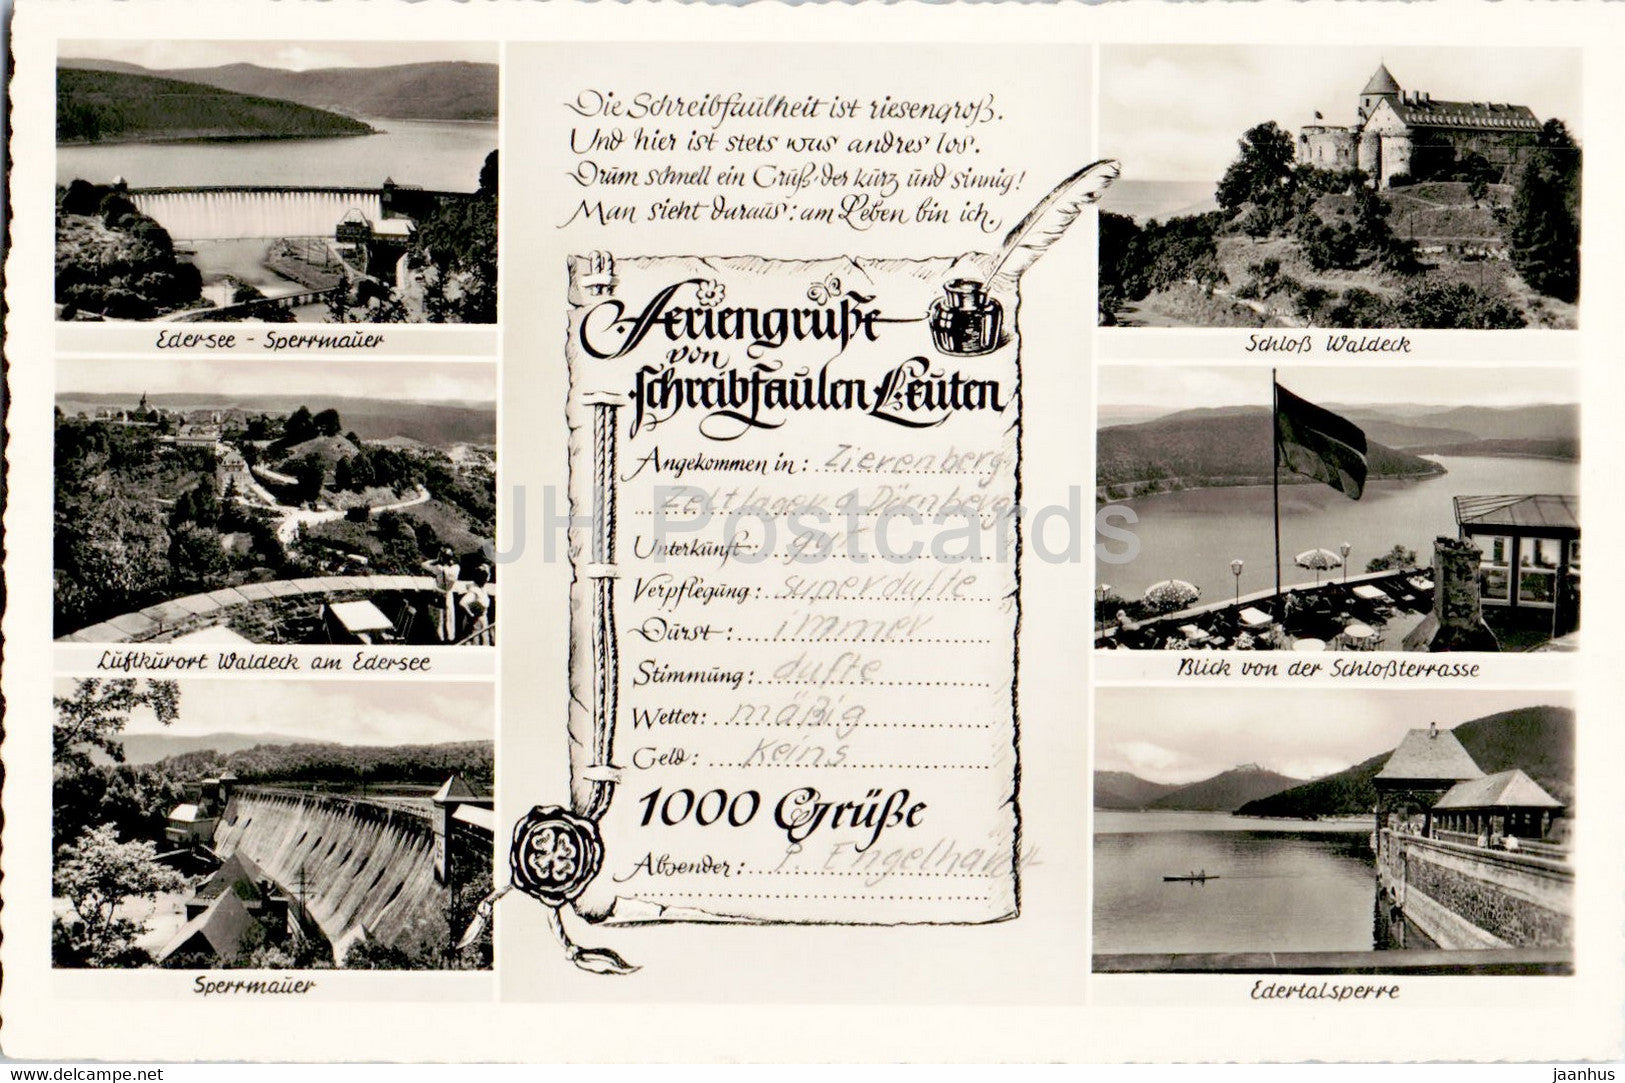 Die Schreibfaulheit ist riesengroß.
Und hier ist stets was andres los.
Drum schnell ein Gruß, der kurz und sinnig!
Man sieht daraus: am Leben bin ich.
Feriengrüße
von
schreibfaulen Leuten
Angekommen in: Zierenberg
Zeltlager a. Dörnberg
Unterkunft: gut
Verpflegung: superdufte
Durst: immer
Stimmung: dufte
Wetter: mäßig
Geld: keins
1000 Grüße
Absender: P. Engelhardt
Edersee - Sperrmauer
Luftkurort Waldeck am Edersee
Sperrmauer
Schloß Waldeck
Blick von der Schloßterrasse
Edertalsperre
JH Postcards
www.delcampe.net
jaanhus